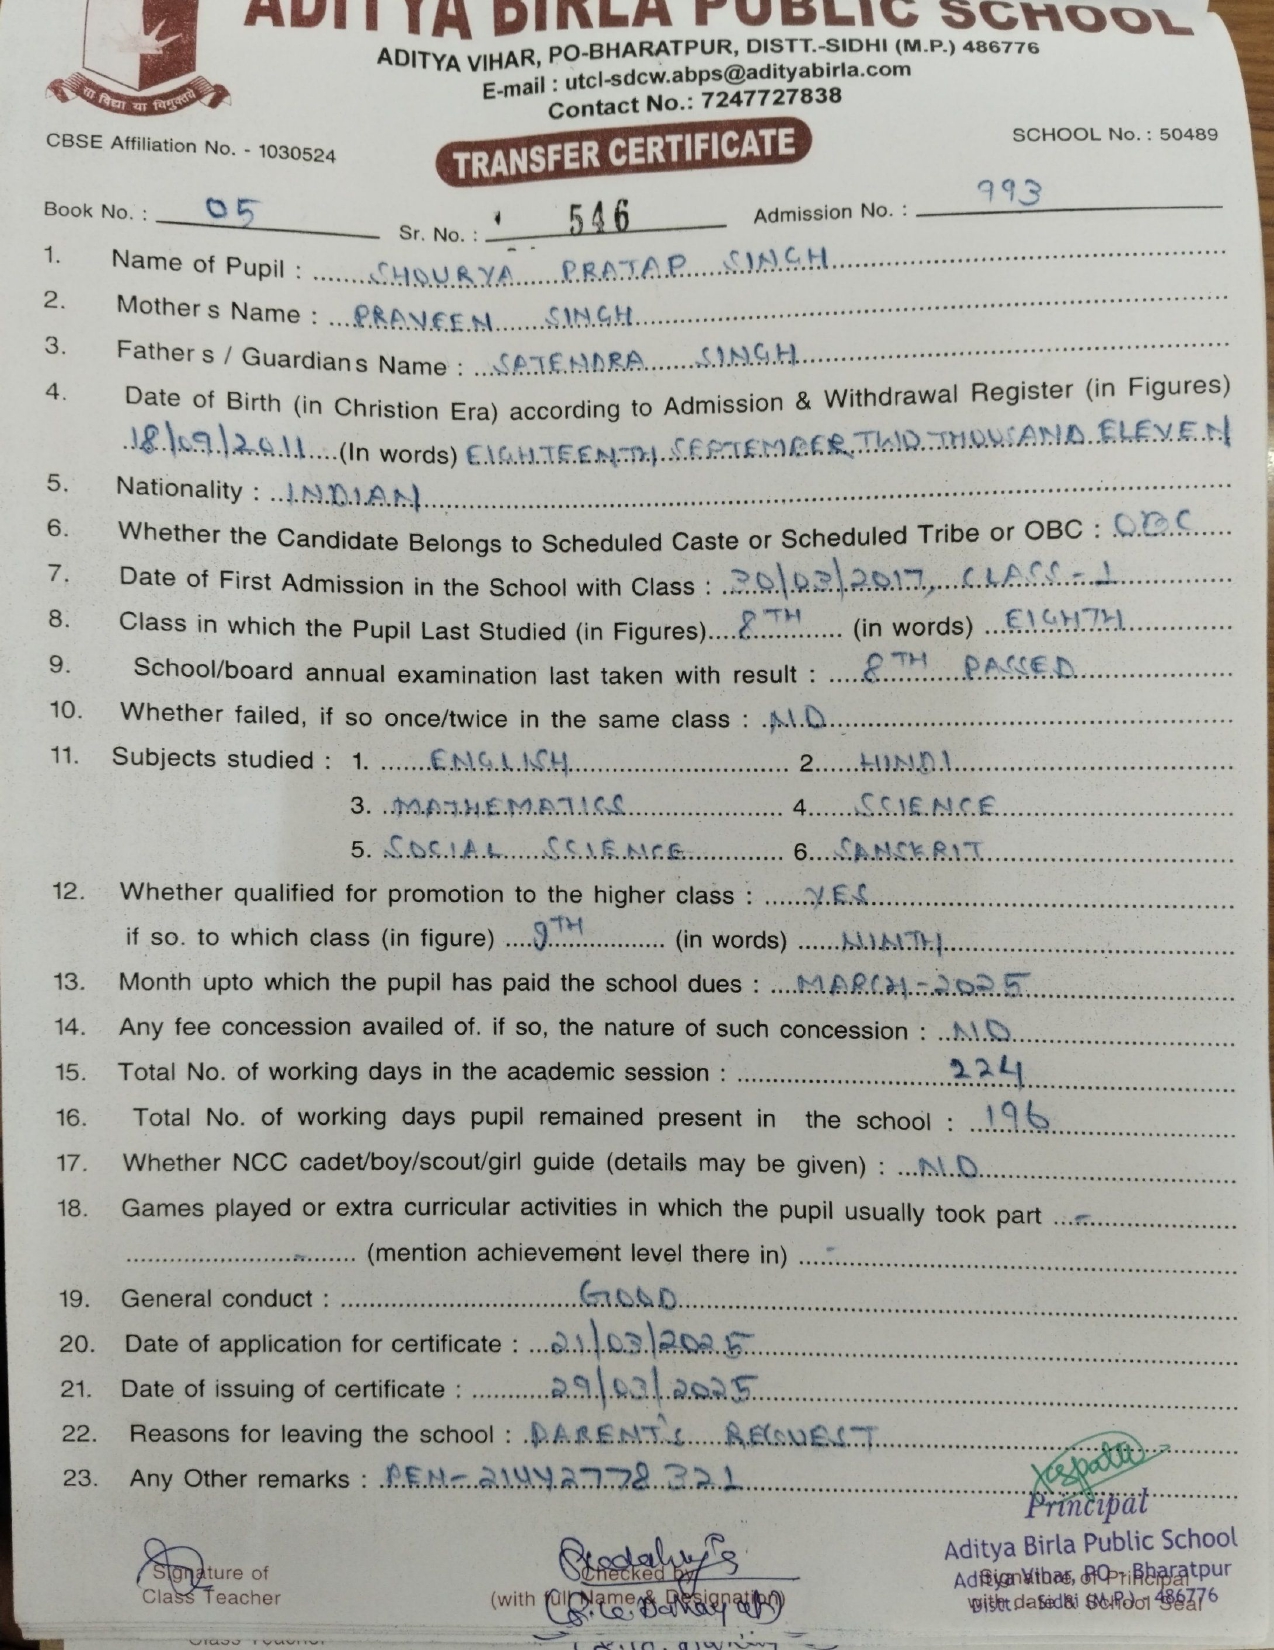 ADITYA BIRLA PUBLIC SCHOOL
ADITYA VIHAR, PO-BHARATPUR, DISTT.-SIDHI (M.P.) 486776
E-mail : utcl-sdcw.abps@adityabirla.com
Contact No.: 7247727838
सा विद्या या विमुक्तये
CBSE Affiliation No. - 1030524
SCHOOL No. : 50489
TRANSFER CERTIFICATE
Book No. : 05 Sr. No. : 546 Admission No. : 993
1. Name of Pupil : SHOURYA PRATAP SINGH
2. Mother s Name : PRAVEEN SINGH
3. Father s / Guardian s Name : SATENDRA SINGH
4. Date of Birth (in Christion Era) according to Admission & Withdrawal Register (in Figures)
18/09/2011 (In words) EIGHTEENTH SEPTEMBER TWO THOUSAND ELEVEN
5. Nationality : INDIAN
6. Whether the Candidate Belongs to Scheduled Caste or Scheduled Tribe or OBC : OBC
7. Date of First Admission in the School with Class : 30/03/2017, CLASS-1
8. Class in which the Pupil Last Studied (in Figures) 8TH (in words) EIGHTH
9. School/board annual examination last taken with result : 8TH PASSED
10. Whether failed, if so once/twice in the same class : NO
11. Subjects studied : 1. ENGLISH 2. HINDI
3. MATHEMATICS 4. SCIENCE
5. SOCIAL SCIENCE 6. SANSKRIT
12. Whether qualified for promotion to the higher class : YES
if so. to which class (in figure) 9TH (in words) NINTH
13. Month upto which the pupil has paid the school dues : MARCH-2025
14. Any fee concession availed of. if so, the nature of such concession : NO
15. Total No. of working days in the academic session : 224
16. Total No. of working days pupil remained present in the school : 196
17. Whether NCC cadet/boy/scout/girl guide (details may be given) : NO
18. Games played or extra curricular activities in which the pupil usually took part -
- (mention achievement level there in) -
19. General conduct : GOOD
20. Date of application for certificate : 21/03/2025
21. Date of issuing of certificate : 29/03/2025
22. Reasons for leaving the school : PARENT'S REQUEST
23. Any Other remarks : PEN-21442778321
Principal
Aditya Birla Public School
Aditya Vihar, PO - Bharatpur
Distt. - Sidhi (M.P.) - 486776
Signature of
Class Teacher
Checked by
(with full Name & Designation)
Signature of Principal
with date & School Seal
Class Teacher